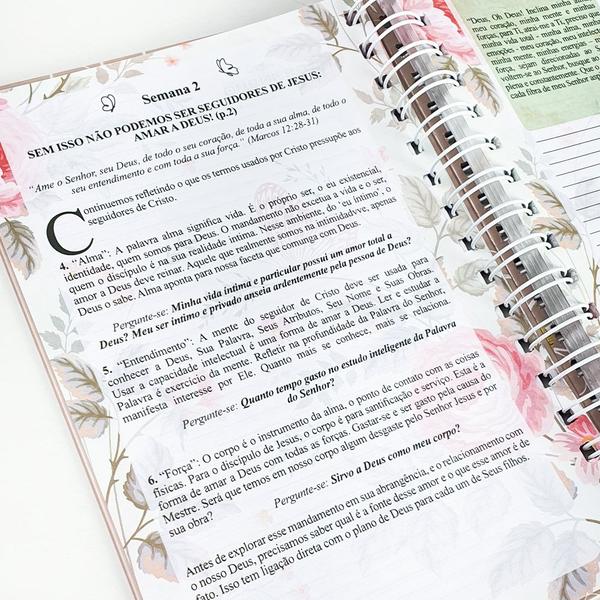 Semana 2
SEM ISSO NÃO PODEMOS SER SEGUIDORES DE JESUS:
AMAR A DEUS! (p.2)
“Ame o Senhor, seu Deus, de todo o seu coração, de toda a sua alma, de todo o
seu entendimento e com toda a sua força.” (Marcos 12:28-31)
Continuemos refletindo o que os termos usados por Cristo pressupõe aos
seguidores de Cristo.
4. “Alma”: A palavra alma significa vida. É o próprio ser, o eu existencial,
identidade, quem somos para Deus. O mandamento não excetua a vida e o ser,
quem o discípulo é na sua realidade interna. Nesse ambiente, do ‘eu íntimo’, o
amor a Deus deve reinar. Aquele que realmente somos na intimidade, apenas
Deus o sabe. Alma aponta para nossa faceta que comunga com Deus.
Pergunte-se: Minha vida íntima e particular possui um amor total a
Deus? Meu ser íntimo e privado anseia ardentemente pela pessoa de Deus?
5. “Entendimento”: A mente do seguidor de Cristo deve ser usada para
conhecer a Deus, Sua Palavra, Seus Atributos, Seu Nome e Suas Obras.
Usar a capacidade intelectual é uma forma de amar a Deus. Ler e estudar a
Palavra é exercício da mente. Refletir na profundidade da Palavra do Senhor,
manifesta interesse por Ele. Quanto mais se conhece, mais se relaciona.
Pergunte-se: Quanto tempo gasto no estudo inteligente da Palavra
do Senhor?
6. “Força”: O corpo é o instrumento da alma, o ponto de contato com as coisas
físicas. Para o discípulo de Jesus, o corpo é para santificação e serviço. Esta é a
forma de amar a Deus com todas as forças. Gastar-se e ser gasto pela causa do
Mestre. Será que temos em nosso corpo algum desgaste pelo Senhor Jesus e por
sua obra?
Pergunte-se: Sirvo a Deus como meu corpo?
Antes de explorar esse mandamento em sua abrangência, e o relacionamento com
o nosso Deus, precisamos saber qual é a fonte desse amor e o que esse amor é de
fato. Isso tem ligação direta com o plano de Deus para cada um de Seus filhos.
“Deus, Oh Deus! Inclina minha alma,
meu coração, minha mente e minhas
forças, para Ti, atrai-me a Ti, preciso que
minha vida total - minha alma, minhas
emoções - meu coração, meu intelecto
minha mente, minhas energias -
força, sejam direcionadas ao
voltem-se ao Senhor, busque ao
plena e constantemente. Que o
cada fibra de meu Senhor aqu